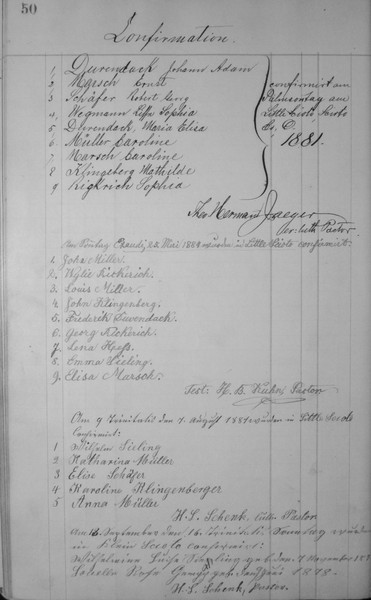 50
Confirmation.
1, Durendack Johann Adam
2 Marsch Ernst
3 Schäfer Robert Georg
4, Wegmann Sophia
5 Durendack, Maria Elisa
6 Müller Caroline
7 Marsch Caroline
8 Klingeberg Mathilde
9 Kickrich Sophia
confirmirt am
Palmsontag am
Little Scioto
1881.
Theo Hermann Jaeger
luth Pastor
Am Sontag Exaudi, 22 Mai 1884 wurden in Little Scioto confirmirt:
1. John Miller.
2. Wylie Kickerich.
3. Louis Miller.
4. John Klingenberg.
5. Frederik Duvendack.
6. Georg Kickerich.
7. Lena Haass.
8. Emma Sieling.
9. Elisa Marsch.
Test: H. B. Kuhn, Pastor
Am 7 Trinitatis den 7. August 1887 wurden in Little Scioto
Confirmirt:
1 Wilhelm Sieling
2 Katharina Müller
3 Elise Schäfer
4 Karoline Klingenberger
5 Anna Müller
H. L. Schenk, Pastor
Am 16. September den 16. Trinitatis Sonntag wurden
in Klein Scioto confirmirt:
Wilhelmine Luise Sieling geb. den 7 November
H. L. Schenk, Pastor.